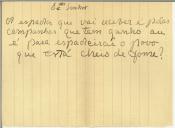 Ex.mo Senhor
A espada que vai receber é pelas
campanhas que tem ganho ou
é para espadeirar o povo
que está cheio de fome?